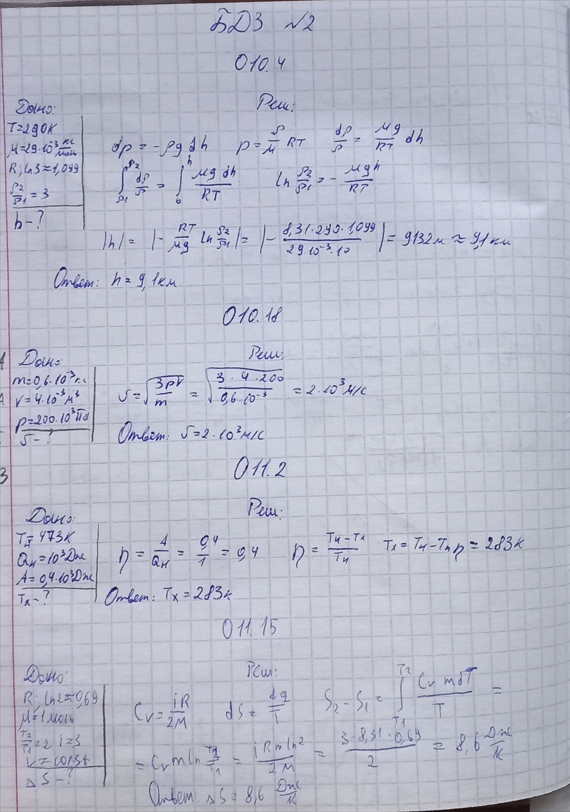 БДЗ №2
О10.4
Дано:
Реш:
T=290К
μ=29·10⁻³ кг/моль
R; ln3≈1,099
ρ₂/ρ₁ = 3
h-?
dp = -ρg dh p = ρ/μ RT dρ/ρ = μg/RT dh
∫ρ₁^ρ₂ dρ/ρ = ∫₀^h μg dh/RT ln ρ₂/ρ₁ = - μgh/RT
|h| = |- RT/μg ln ρ₂/ρ₁| = |- 8,31·290·1,099/29·10⁻³·10| = 9132м ≈ 9,1 км
Ответ: h = 9,1км
О10.18
Дано:
Реш:
m=0,6·10⁻³кг
V=4·10⁻³м³
p=200·10³Па
υ-?
υ = √3pV/m = √3·4·200/0,6·10⁻³ = 2·10³м/с
Ответ: υ=2·10³м/с
О11.2
Дано:
Реш:
Qн=10³Дж
A=0,4·10³Дж
Tх-?
η = A/Qн = 0,4/1 = 0,4 η = Tн-Tх/Tн Tх = Tн-Tнη = 283к
Ответ: Tх=283к
О11.15
Дано:
Реш:
R; ln2≈0,69
M=1моль
T₂/T₁=2 i=3
V=const
ΔS-?
Cv = iR/2M dS = dq/T S₂-S₁ = ∫T₁^T₂ Cv m dT/T =
= Cv m ln T₂/T₁ = iRmln2/2M = 3·8,31·0,69/2 = 8,6 Дж/К
Ответ: ΔS = 8,6 Дж/К